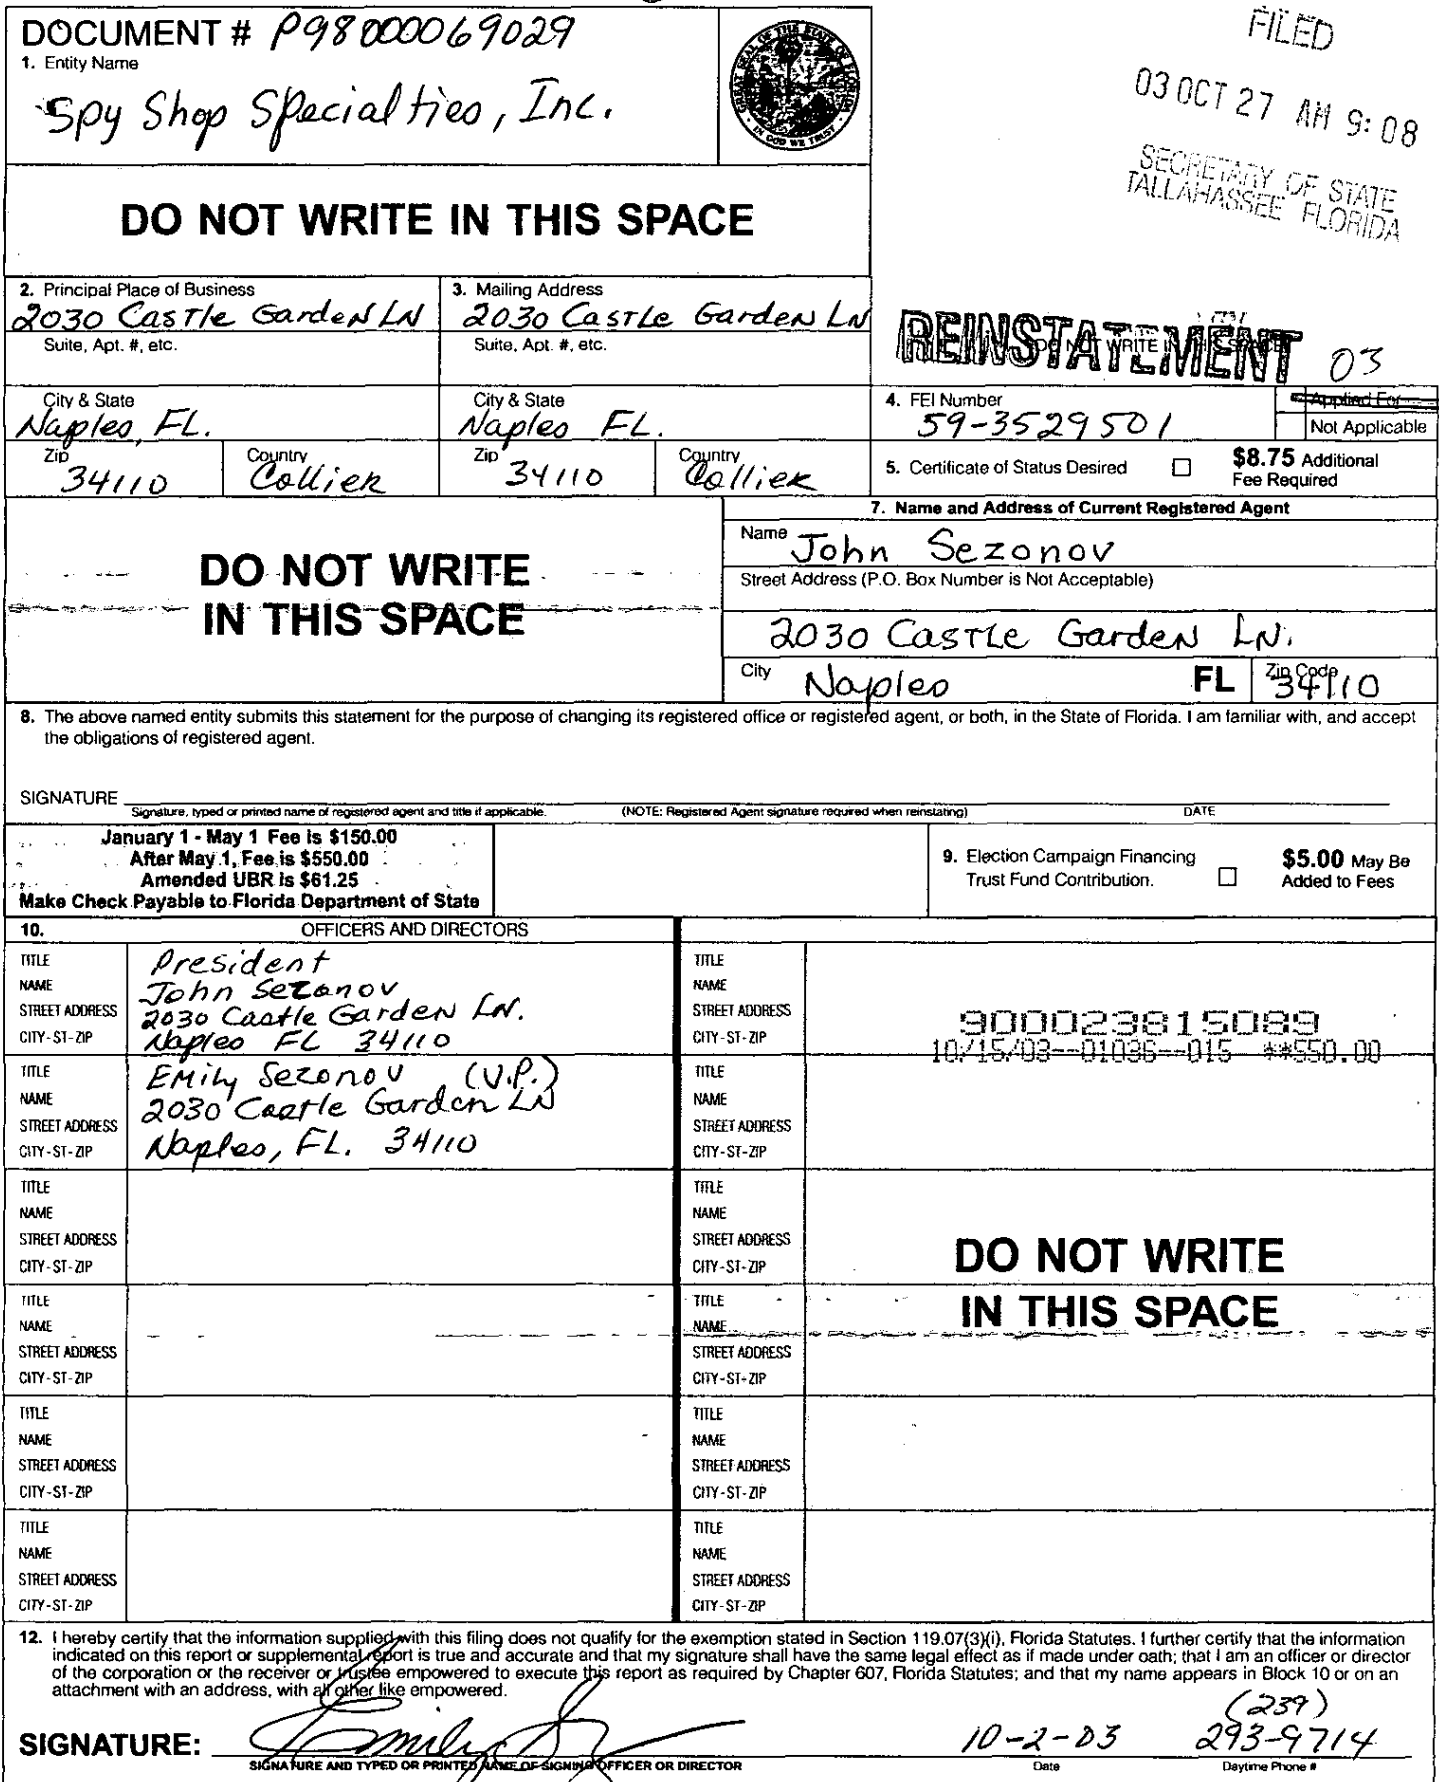 DOCUMENT # P98000069029
1. Entity Name
Spy Shop Specialties, Inc.
GREAT SEAL OF THE STATE OF FLORIDA
IN GOD WE TRUST
FILED
03 OCT 27 AM 9:08
SECRETARY OF STATE
TALLAHASSEE FLORIDA
DO NOT WRITE IN THIS SPACE
2. Principal Place of Business
2030 Castle Garden LN
Suite, Apt. #, etc.
City & State
Naples, FL.
Zip
34110
Country
Collier
3. Mailing Address
2030 Castle Garden LN
Suite, Apt. #, etc.
City & State
Naples FL.
Zip
34110
Country
Collier
REINSTATEMENT 03
DO NOT WRITE IN THIS SPACE
4. FEI Number
59-3529501
Applied For
Not Applicable
5. Certificate of Status Desired
$8.75 Additional
Fee Required
DO NOT WRITE
IN THIS SPACE
7. Name and Address of Current Registered Agent
Name John Sezonov
Street Address (P.O. Box Number is Not Acceptable)
2030 Castle Garden LN.
City Naples FL Zip Code 34110
8. The above named entity submits this statement for the purpose of changing its registered office or registered agent, or both, in the State of Florida. I am familiar with, and accept
the obligations of registered agent.
SIGNATURE
Signature, typed or printed name of registered agent and title if applicable. (NOTE: Registered Agent signature required when reinstating) DATE
January 1 - May 1 Fee is $150.00
After May 1, Fee is $550.00
Amended UBR is $61.25
Make Check Payable to Florida Department of State
9. Election Campaign Financing
Trust Fund Contribution.
$5.00 May Be
Added to Fees
10. OFFICERS AND DIRECTORS
TITLE President
NAME John Sezonov
STREET ADDRESS 2030 Castle Garden LN.
CITY-ST-ZIP Naples FL 34110
TITLE
NAME
STREET ADDRESS
CITY-ST-ZIP
900023815089
10/15/03--01036--015 **550.00
TITLE Emily Sezonov (V.P.)
NAME 2030 Castle Garden LN
STREET ADDRESS
CITY-ST-ZIP Naples, FL. 34110
TITLE
NAME
STREET ADDRESS
CITY-ST-ZIP
TITLE
NAME
STREET ADDRESS
CITY-ST-ZIP
TITLE
NAME
STREET ADDRESS
CITY-ST-ZIP
DO NOT WRITE
IN THIS SPACE
TITLE
NAME
STREET ADDRESS
CITY-ST-ZIP
TITLE
NAME
STREET ADDRESS
CITY-ST-ZIP
TITLE
NAME
STREET ADDRESS
CITY-ST-ZIP
TITLE
NAME
STREET ADDRESS
CITY-ST-ZIP
TITLE
NAME
STREET ADDRESS
CITY-ST-ZIP
TITLE
NAME
STREET ADDRESS
CITY-ST-ZIP
12. I hereby certify that the information supplied with this filing does not qualify for the exemption stated in Section 119.07(3)(i), Florida Statutes. I further certify that the information
indicated on this report or supplemental report is true and accurate and that my signature shall have the same legal effect as if made under oath; that I am an officer or director
of the corporation or the receiver or trustee empowered to execute this report as required by Chapter 607, Florida Statutes; and that my name appears in Block 10 or on an
attachment with an address, with all other like empowered.
SIGNATURE: Emily 10-2-03 (239) 293-9714
SIGNATURE AND TYPED OR PRINTED NAME OF SIGNING OFFICER OR DIRECTOR Date Daytime Phone #